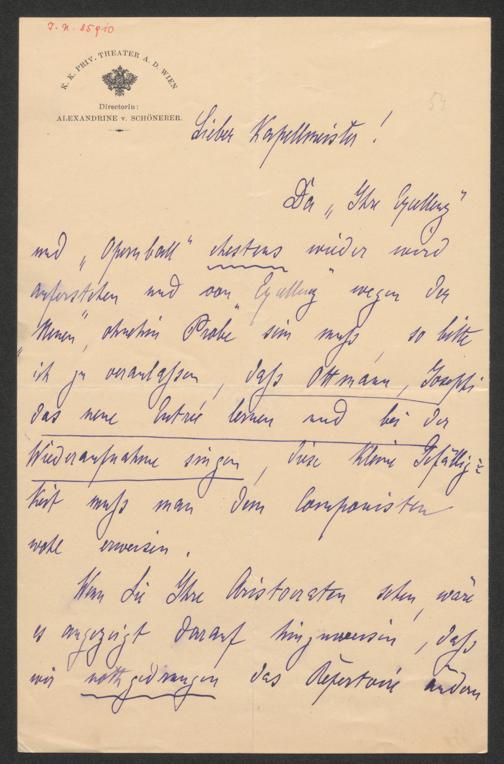 J. N. 85910
K. K. PRIV. THEATER A. D. WIEN
Directorin:
ALEXANDRINE v. SCHÖNERER.
54
Lieber Kapellmeister!
Da „Ihre Excellenz"
und „Opernball" ehestens wieder wird
auferstehen und von „Excellenz" wegen der
„Neuen", ohnehin Probe sein muß, so bitte
ich zu veranlassen, daß Ottmann, Josephi
das neue Entrée lernen und bei der
Wiederaufnahme singen, diese kleine Gefällig=
keit muß man dem Componisten
wohl erweisen.
Wenn Sie Ihre Aristocraten sehen, wäre
es angezeigt darauf hinzuweisen, daß
wir nothgedrungen das Repertoire ändern